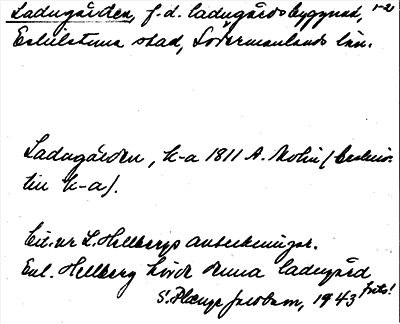 Ladugården, f.d. ladugårdsbyggnad, 1-2
Eskilstuna stad, Södermanlands län.
Ladugården, k-a 1811 A. Molin (beskriv.
till k-a).
Cit. ur L. Hellbergs anteckningar.
Enl. Hellberg hörde denna ladugård
S. Plænge Jacobson, 1943